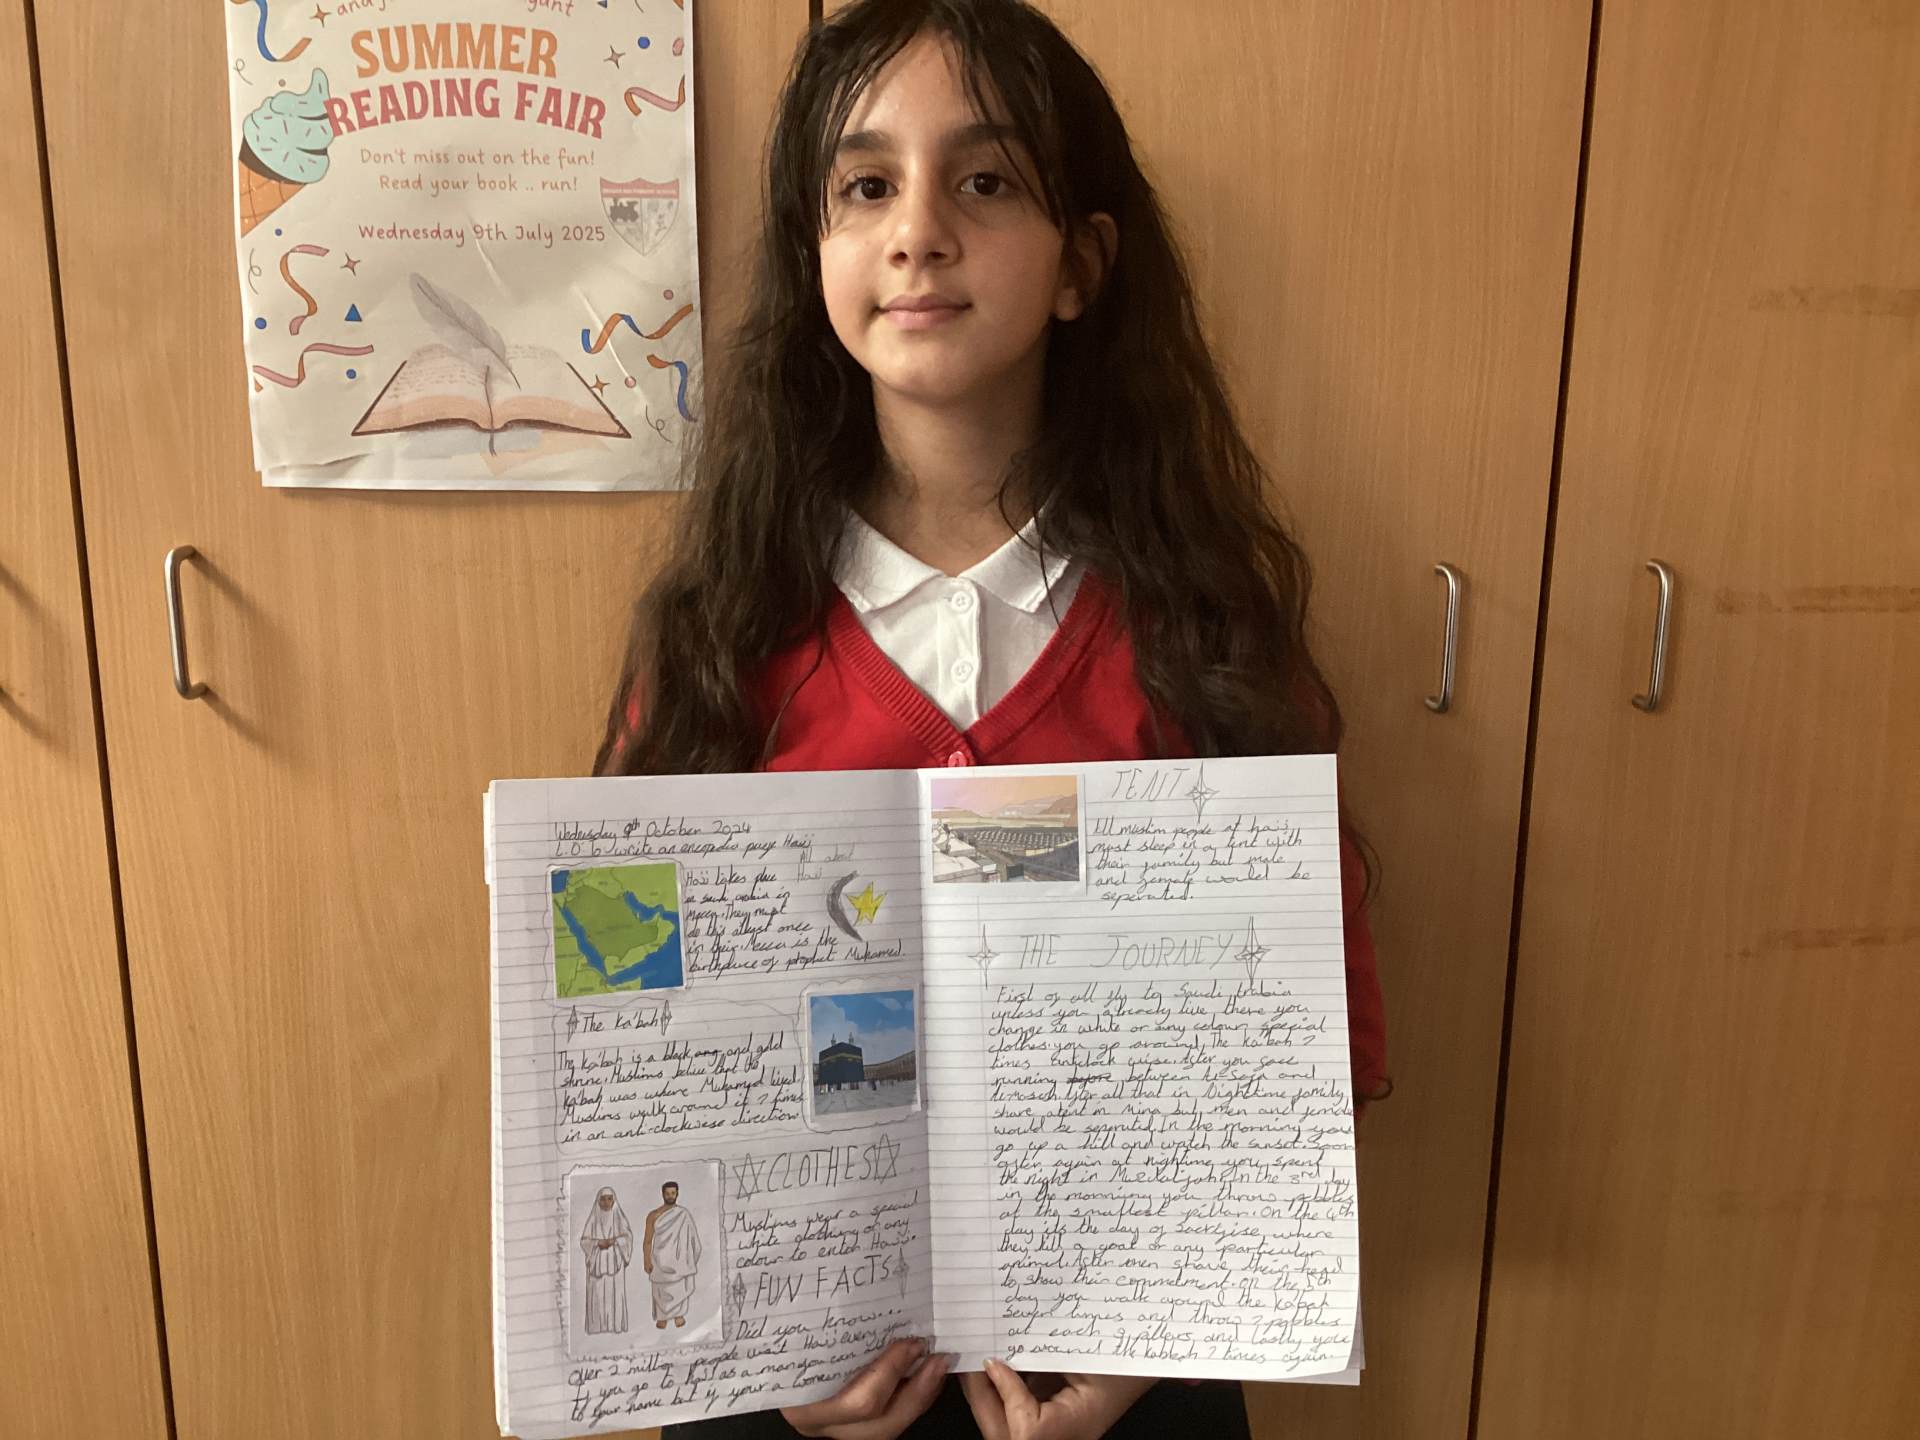 SUMMER
READING FAIR
Don't miss out on the fun!
Read your book .. run!
Wednesday 9th July 2025
Wednesday 9th October 2024
L.O. to write an encopedia page Hajj
All about
Hajj
Hajj takes place
in saudi arabia in
Mecca. They must
do this atleast once
in their. Mecca is the
birthplace of prophet Muhamed.
The Ka'bah
The Ka'bah is a black and gold
shrine. Muslims belive that the
Ka'bah was where Muhamed lived.
Muslims walk around it 7 times
in an anti-clockwise direction.
CLOTHES
Muslims wear a special
white clothing or any
colour to enter Hajj.
FUN FACTS
Did you know...
over 2 million people visit Hajj every year
If you go to Hajj as a man you can
to your name but if your a women
TENT
All muslim people at hajj
most sleep in a tent with
their family but male
and female would be
seperated.
THE JOURNEY
First of all fly to Saudi Arabia
unless you already live there you
change in white or any colour special
clothes. you go around The Ka'bah 7
times anticlock wise. After you
running between As-Safa and
after all that in Nighttime family
share a tent in Mina but men and female
would be seperated. In the morning you
go up a hill and watch the sunset. Soon
after again at nightime you spent
the night in In the 3rd day
in the mornning you throw pebbles
at the smallest pillar. On the 4th
day its the day of sacrifise where
they kill a goat or any particular
animal. After men shave their head
to show their commetment. On the 5th
day you walk around the Ka'bah
Seven times and throw 7 pebbles
at each pillars and lastly you
go around the kabbah 7 times again.